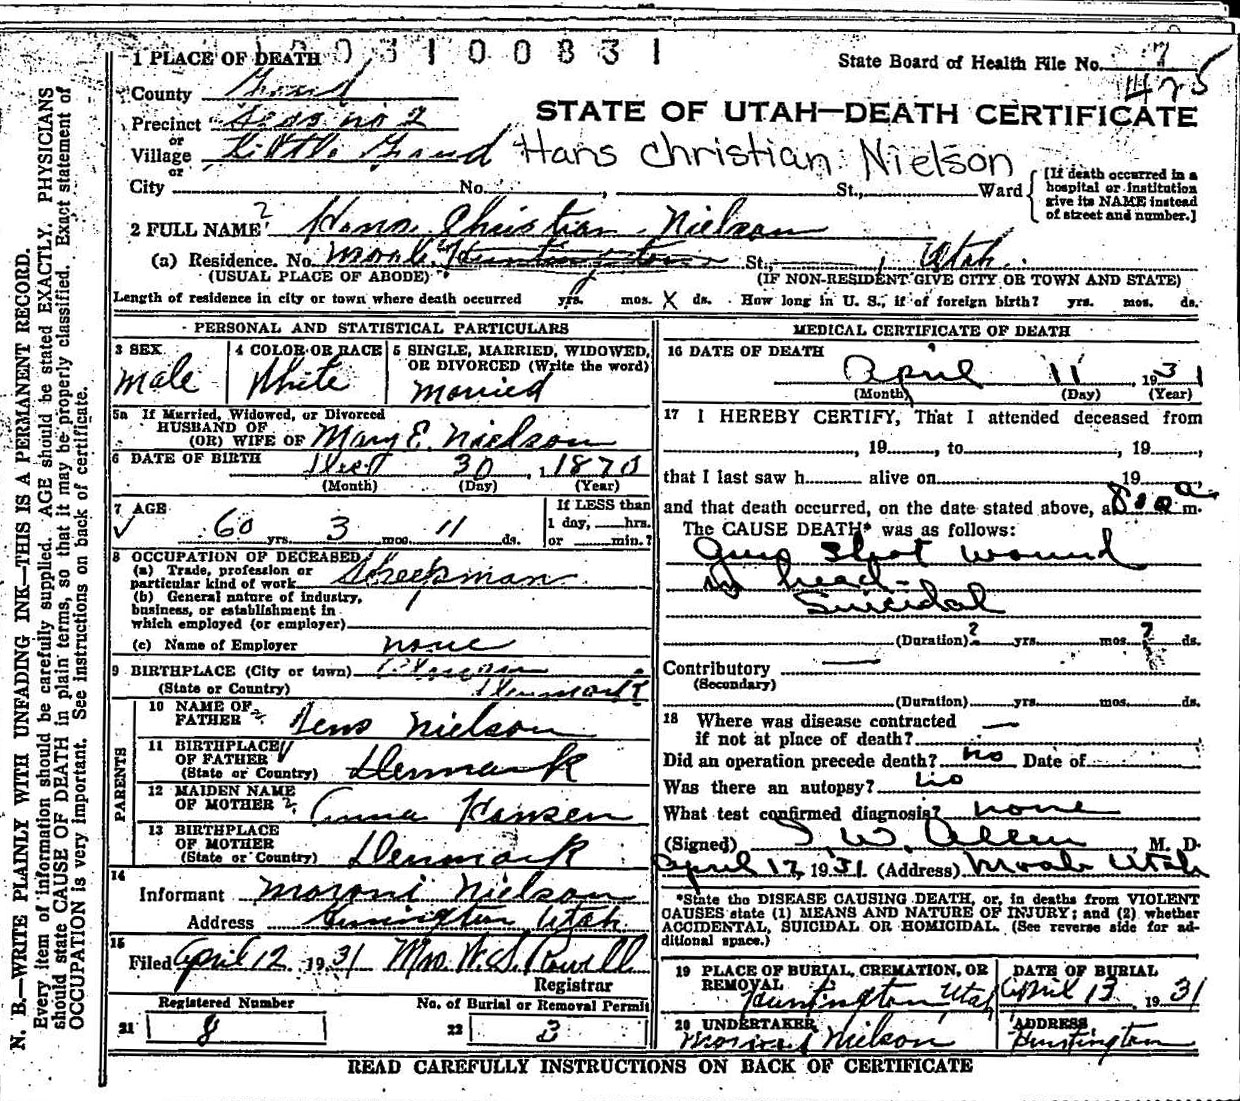 1003100831
1 PLACE OF DEATH
State Board of Health File No. 7
425
County Grand
STATE OF UTAH—DEATH CERTIFICATE
Precinct no 2
or
Village Little Grand Hans Christian Nielson
or
City No. , St., Ward
[If death occurred in a hospital or institution give its NAME instead of street and number.]
2 FULL NAME Hans Christian Nielson
(a) Residence. No. Moab Huntington St., Utah.
(USUAL PLACE OF ABODE) (IF NON-RESIDENT GIVE CITY OR TOWN AND STATE)
Length of residence in city or town where death occurred yrs. mos. X ds. How long in U. S., if of foreign birth? yrs. mos. ds.
PERSONAL AND STATISTICAL PARTICULARS
3 SEX
Male
4 COLOR OR RACE
White
5 SINGLE, MARRIED, WIDOWED,
OR DIVORCED (Write the word)
Married
5a If Married, Widowed, or Divorced
HUSBAND OF
(OR) WIFE OF Mary E. Nielson
6 DATE OF BIRTH Dec 30 1870
(Month) (Day) (Year)
7 AGE
60 yrs. 3 mos. 11 ds.
If LESS than
1 day, hrs.
or min.?
8 OCCUPATION OF DECEASED
(a) Trade, profession or
particular kind of work Sheepman
(b) General nature of industry,
business, or establishment in
which employed (or employer)
(c) Name of Employer none
9 BIRTHPLACE (City or town)
(State or Country) Denmark
PARENTS
10 NAME OF
FATHER Jens Nielson
11 BIRTHPLACE
OF FATHER
(State or Country) Denmark
12 MAIDEN NAME
OF MOTHER Anna Hansen
13 BIRTHPLACE
OF MOTHER
(State or Country) Denmark
14
Informant Moroni Nielson
Address Huntington Utah
15
Filed April 12, 1931 Mrs. Powell
Registrar
Registered Number
21 8
No. of Burial or Removal Permit
22 3
MEDICAL CERTIFICATE OF DEATH
16 DATE OF DEATH
April 11, 1931
(Month) (Day) (Year)
17 I HEREBY CERTIFY, That I attended deceased from
, 19 , to , 19 ,
that I last saw h alive on 19
and that death occurred, on the date stated above, at 8:00 a m.
The CAUSE DEATH* was as follows:
Gun Shot wound
in head—
Suicidal
(Duration) ? yrs. mos. ? ds.
Contributory
(Secondary)
(Duration) yrs. mos. ds.
18 Where was disease contracted
if not at place of death?
Did an operation precede death? no Date of
Was there an autopsy? no
What test confirmed diagnosis? none
(Signed) I. W. Allen M. D.
April 12, 1931. (Address) Moab Utah
*State the DISEASE CAUSING DEATH, or, in deaths from VIOLENT
CAUSES state (1) MEANS AND NATURE OF INJURY; and (2) whether
ACCIDENTAL, SUICIDAL OR HOMICIDAL. (See reverse side for ad-
ditional space.)
19 PLACE OF BURIAL, CREMATION, OR
REMOVAL
Huntington Utah
DATE OF BURIAL
April 13, 1931
20 UNDERTAKER
Moroni Nielson
ADDRESS
Huntington
READ CAREFULLY INSTRUCTIONS ON BACK OF CERTIFICATE
N. B.—WRITE PLAINLY WITH UNFADING INK—THIS IS A PERMANENT RECORD.
Every item of information should be carefully supplied. AGE should be stated EXACTLY. PHYSICIANS
should state CAUSE OF DEATH in plain terms, so that it may be properly classified. Exact statement of
OCCUPATION is very important. See instructions on back of certificate.